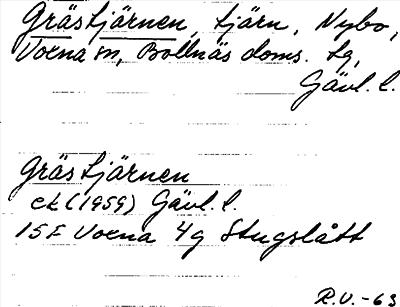 Grästjärnen, tjärn, Nybo,
Voxna sn, Bollnäs doms. tg,
Gävl. l.
Grästjärnen
ek (1959) Gävl. l.
15E Voxna 4g Stugslått
R.V. -63